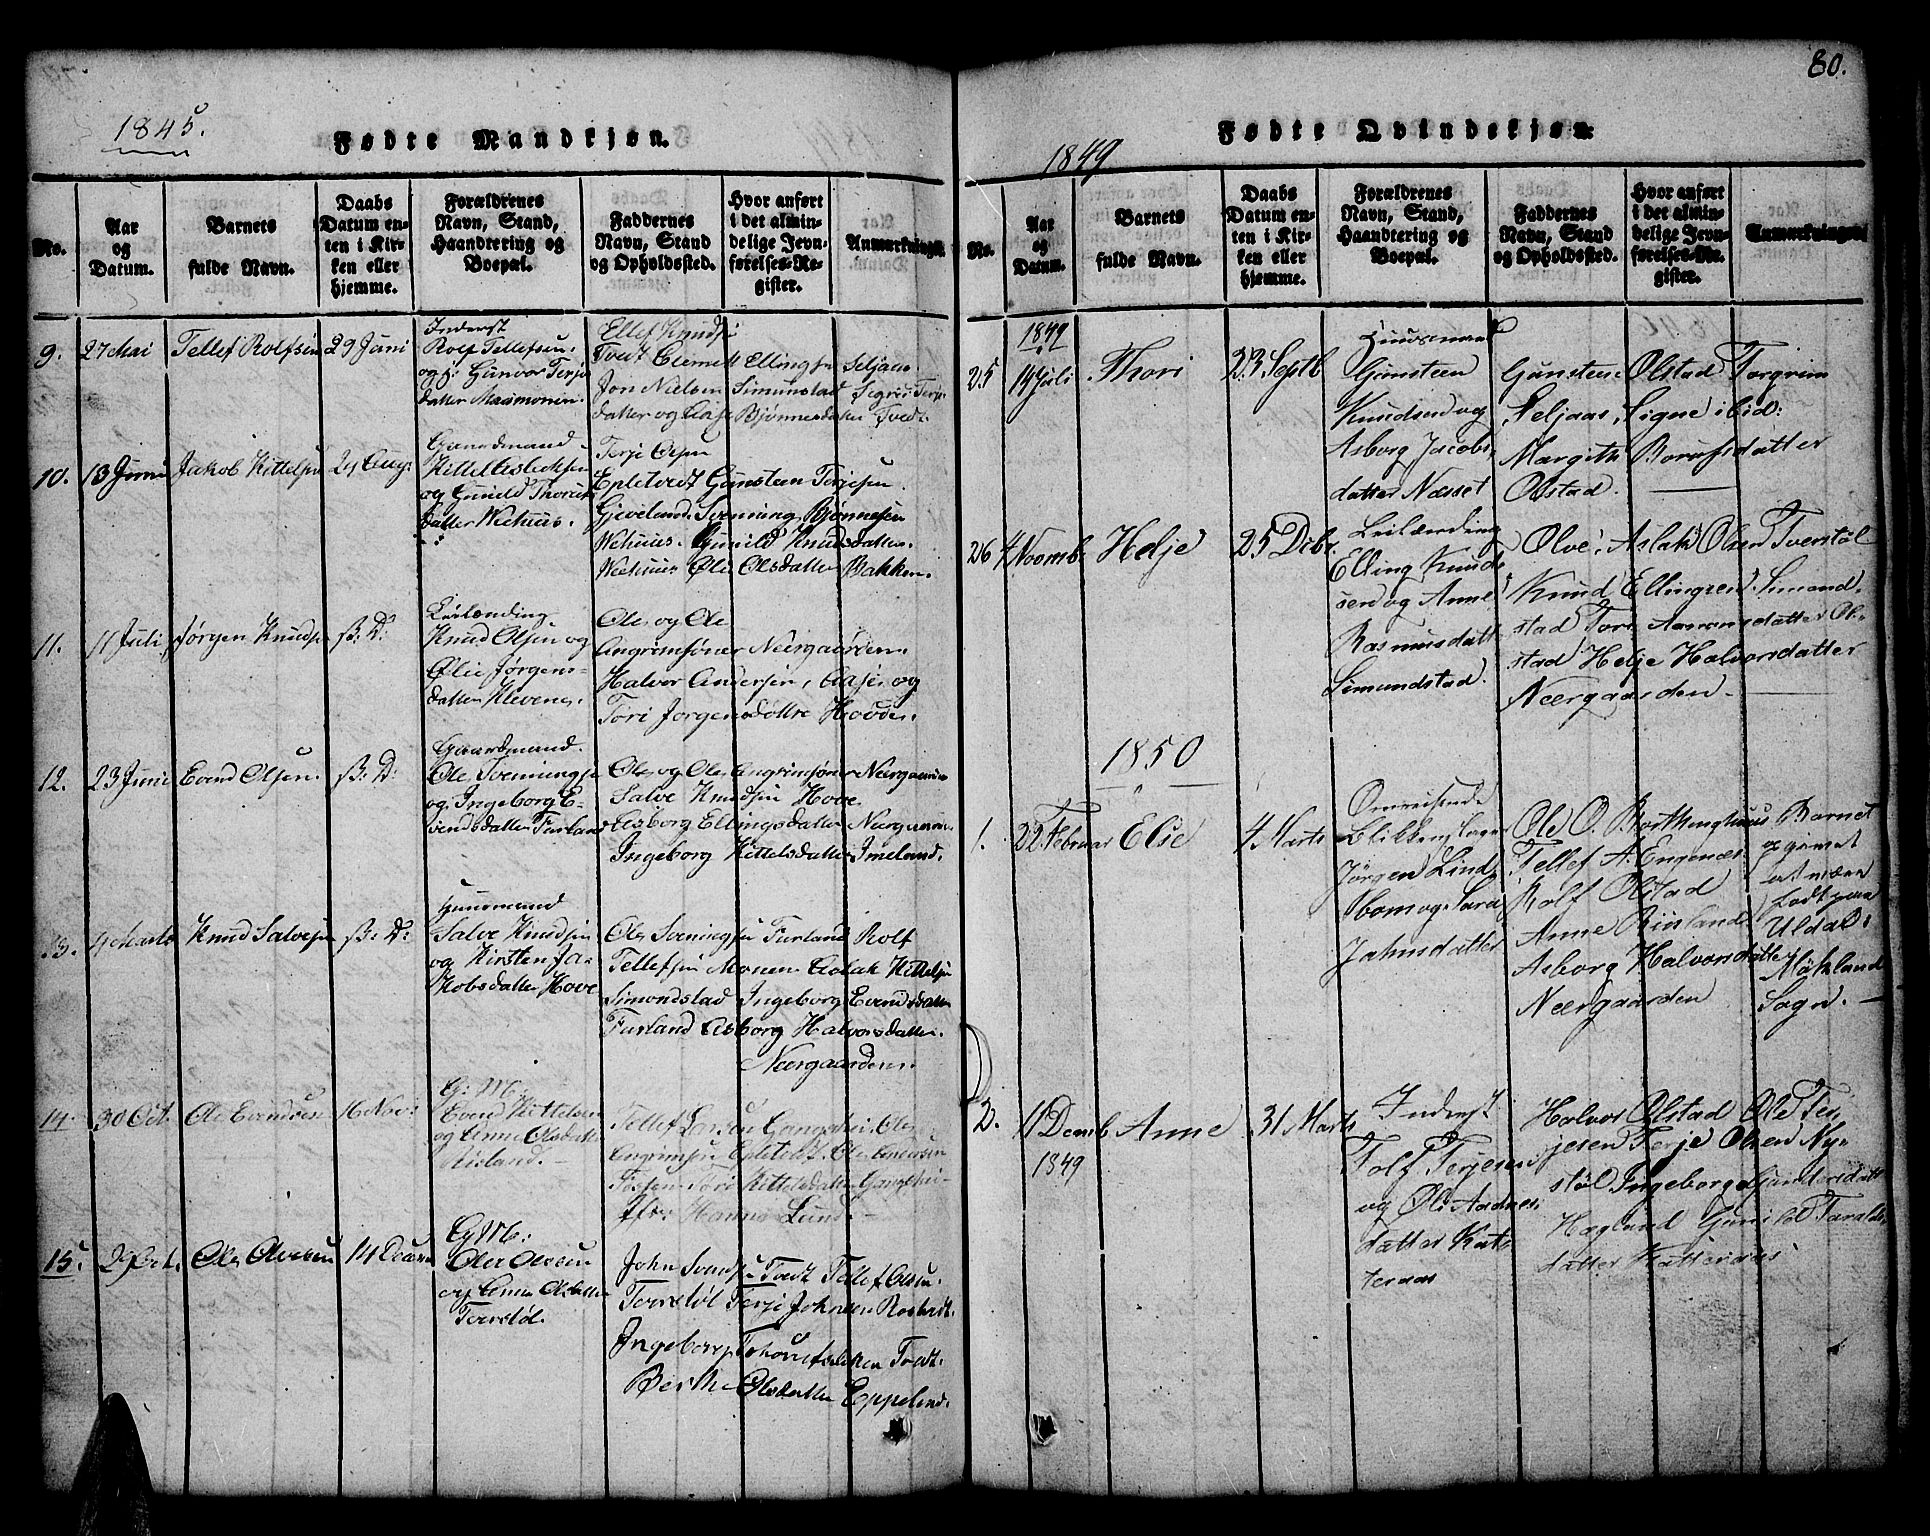 80.
1845.
Fødte Mandkjøn.
No.
Aar
og
Datum.
Barnets
fulde Navn.
Daabs
Datum en-
ten i Kir-
ken eller
hjemme.
Forældrenes
Navn, Stand,
Haandtering og
Boepæl.
Faddernes
Navn, Stand
og Opholdssted.
Hvor anført
i det almin-
delige Jevn-
førelses-Re-
gister.
Anmærkninger
9.
27 Mai
Tellef Rolfsen
29 Juni
Inderst
Rolf Tellefsen
og Gunvor Terje
datter
Ellef Knuds
Tvedt Clemet Ellingsen Seljaas
Jon Nielsen Simunstad Sigrie Terje
datter og Aase Bjønnesdatter Tvedt.
10.
13 Juni
Jakob Kittelsen
24 Aug:
Gaardmand
Kittel Aslaksen
og Gunild
datter Wehuus.
Terje Olsen
Epletvedt Gunsteen Terjesen
Gjeveland. Svenning Bjønnesen
Wehuus. Gunild Knudsdatter
Wehuus Øli Olsdatter Bakken.
11.
11 Juli
Jørgen Knudsen
S: D:
Leilænding
Knud Olsen og
Ølie Jørgens-
datter Klevene.
Ole og Ole
Angrimsønner Neergaarden.
Halvor Andersen, Aase og
Tori Jørgensdøttre Hovde.
12.
23 Juni
Evend Olsen.
S: D:
Gaardmand.
Ole Svenningse
og Ingeborg E-
vendsdatter Furland
Ole og Ole Angrimsønner Neergaarden
Salve Knudsen Hove
Asborg Ellingsdatter Neergaarden
Ingeborg Kittelsdatter Imeland.
13.
4 Marts
Knud Salvesen
S: D:
Huusmand
Salve Knudsen
og Kirsten Ja-
kobsdatter Hove
Ole Svenningsen Furland Rolf
Tellefsen Monen Aslak Kittelsen
Simondstad Ingeborg Evendsdatter
Furland Asborg Halvorsdatter
Neergaarden.
14.
30 Oct.
Ole Evendsen
16 Nov:
G: M:
Evend Kittelsen
og Anne Olsdatter
Risland.
Tellef Larsen Gangsei. Ole
Angrimsen Epletvedt. Ole Andersen
Tori Kittelsdatter Gangsei
Hanna Lund.
15.
29 Oct.
Ole Olvesen
14 Decem
G M:
Olve Olvesen
og Anne Olsdatter
Tverstøl.
John Svendsen Tvedt Tellef Olsen
Tverstøl Terje Johnsen
Ingeborg datter Tvedt.
Berthe Olsdatter Eppeland.
Fødte Qvindekjøn.
1849
No.
Aar
og
Datum.
Barnets
fulde Navn.
Daabs
Datum en-
ten i Kir-
ken eller
hjemme.
Forældrenes
Navn, Stand,
Haandtering og
Boepæl.
Faddernes
Navn, Stand
og Opholdssted.
Hvor anført
i det almin-
delige Jevn-
førelses-Re-
gister.
Anmærkninger
1849
25
14 Juli
Thori
23 Septb
Huusmand
Gunsteen
Knudsen og
Asborg Jacobs
datter Næsset
Gunsteen Olstad Torgrim
Seljaas, Signe ibid:
Margith datter
Olstad.
26
4 Novmb:
Helje
25 Dcbr.
Leilænding
Elling Knud
sen og Anne
Rasmusdatt
Simundstad.
Olve, Aslak Olsen Tverstøl
Knud Ellingsen Simund
stad Tori Aasmundsdatter Ol-
stad Helje Halvorsdatter
Neergaarden
1850
1.
22 Februar
Else
4 Marts
Omreisende
Blikkenslager
Jørgen Lind
bom og Sara
Jahnsdatter
Ole O. Bertheughuus
Tellef A. Engenæs
Rolf Olstad
Anne Risland
Asborg Halvorsdatter
Neergaarden
Barnet
opgivet
at være
født paa
Uldal
Mökland
Sogn.
2.
11 Decmb
1849
Anne
31 Marts
Inderst
Tolf Terjesen
og Øli Aadnes
datter Kats
teraas
Halvor Olstad Ole Ter
jesen Terje Olsen Ny-
støl Ingeborg Gundersdatt
Hagland Gunild Tarald
datter Katteraas